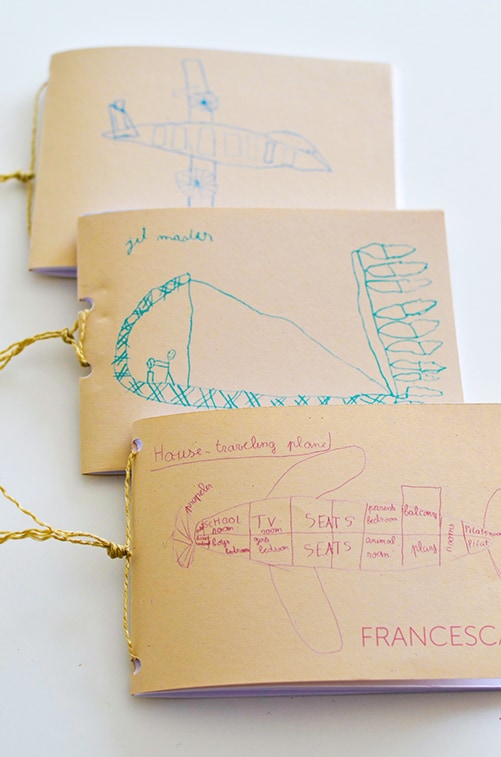 jet master
House-traveling plane
propeler
SCHOOL room
TV room
SEATS
parents bedroom
balcony
boys bedroom
girls bedroom
SEATS
animal room
plans
FRANCESCA